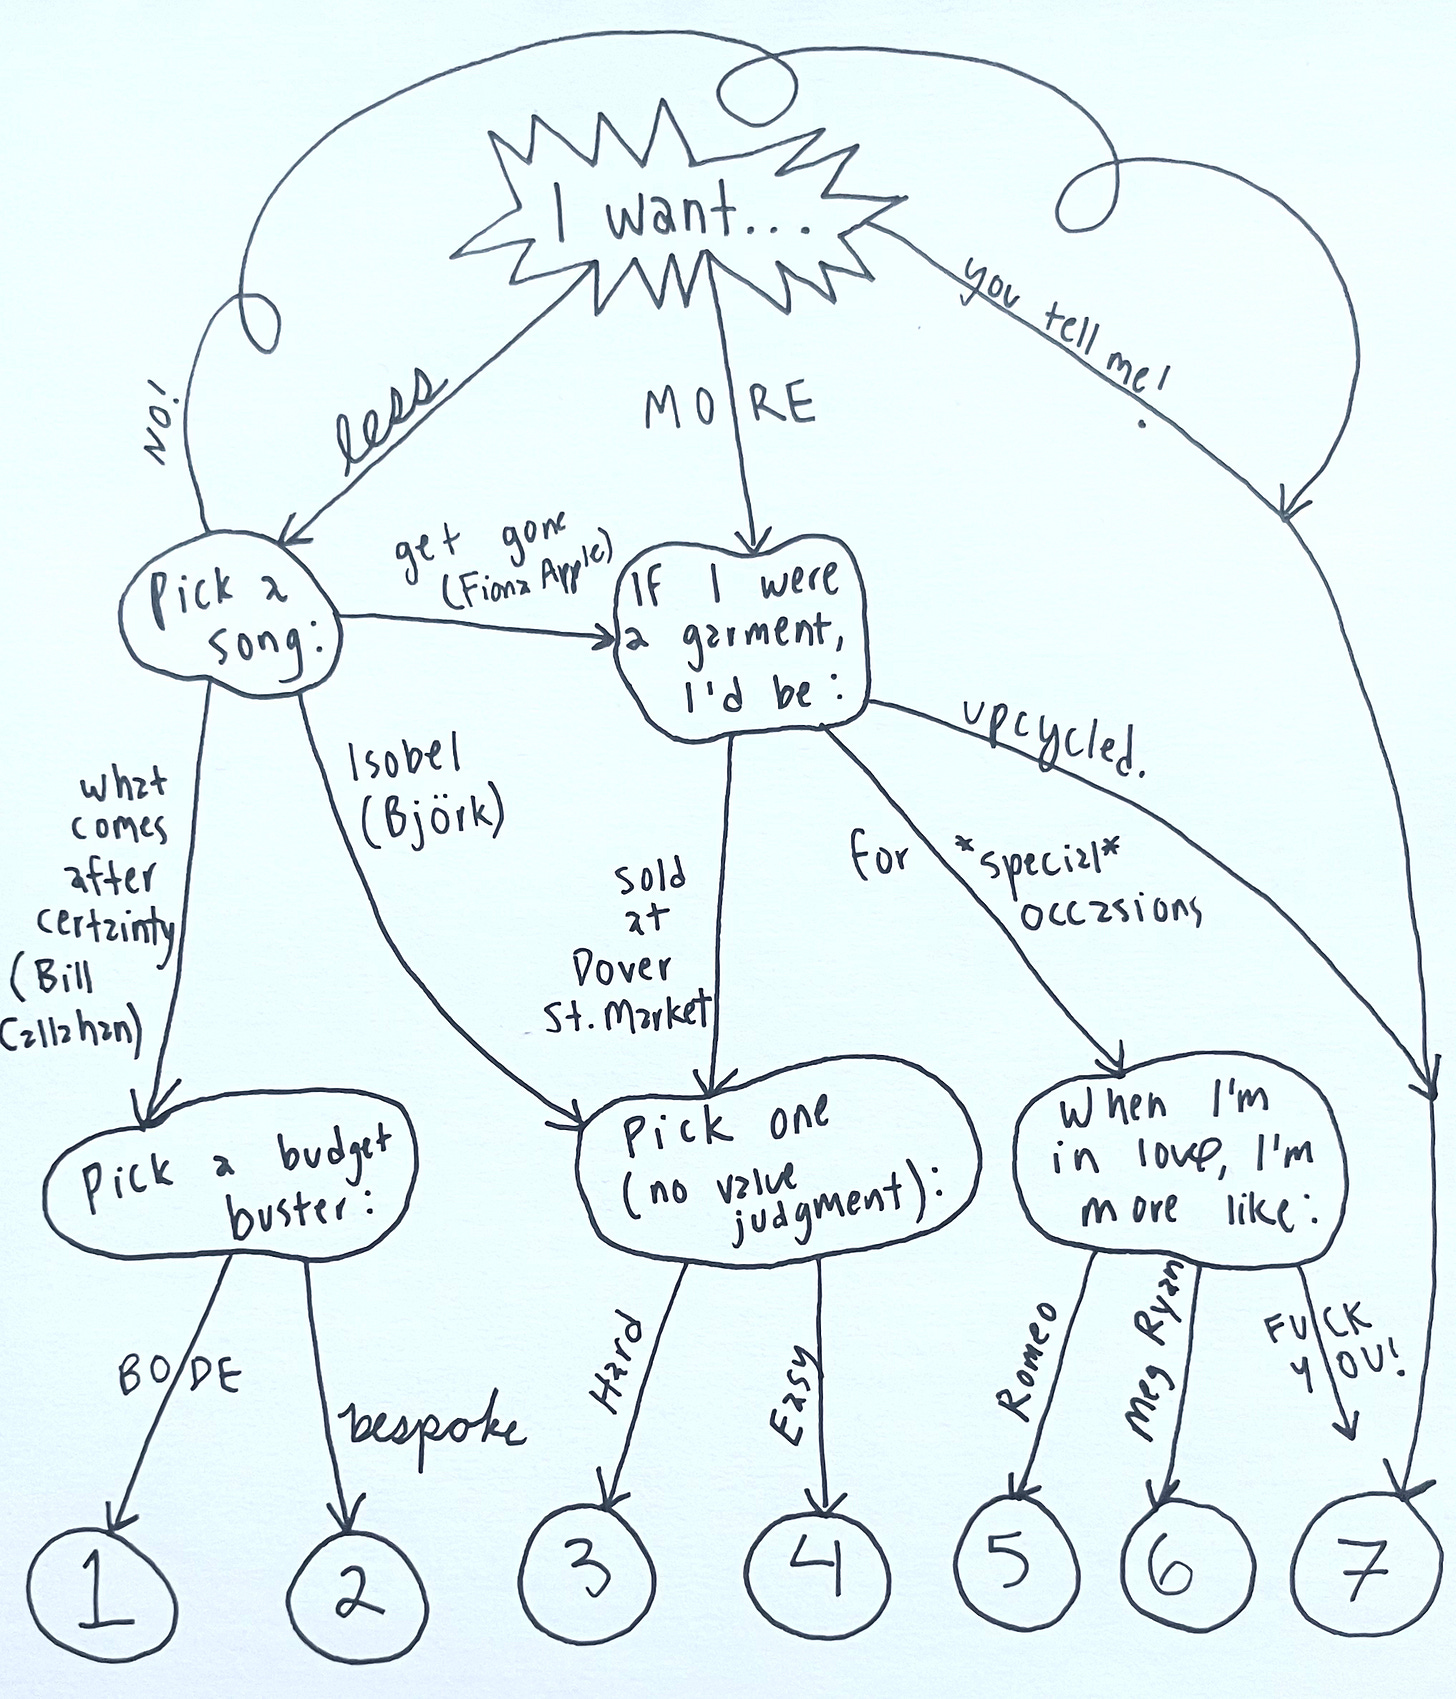 I want...
you tell me!
NO!
less
MORE
get gone
(Fiona Apple)
Pick a
song:
If I were
a garment,
I'd be:
upcycled.
Isobel
(Björk)
what
comes
after
certainty
(Bill
Callahan)
sold
at
Dover
St. Market
for *special*
occasions
Pick a budget
buster:
Pick one
(no value
judgment):
When I'm
in love, I'm
more like:
BODE
bespoke
Hard
Easy
Romeo
Meg Ryan
FUCK
YOU!
1
2
3
4
5
6
7